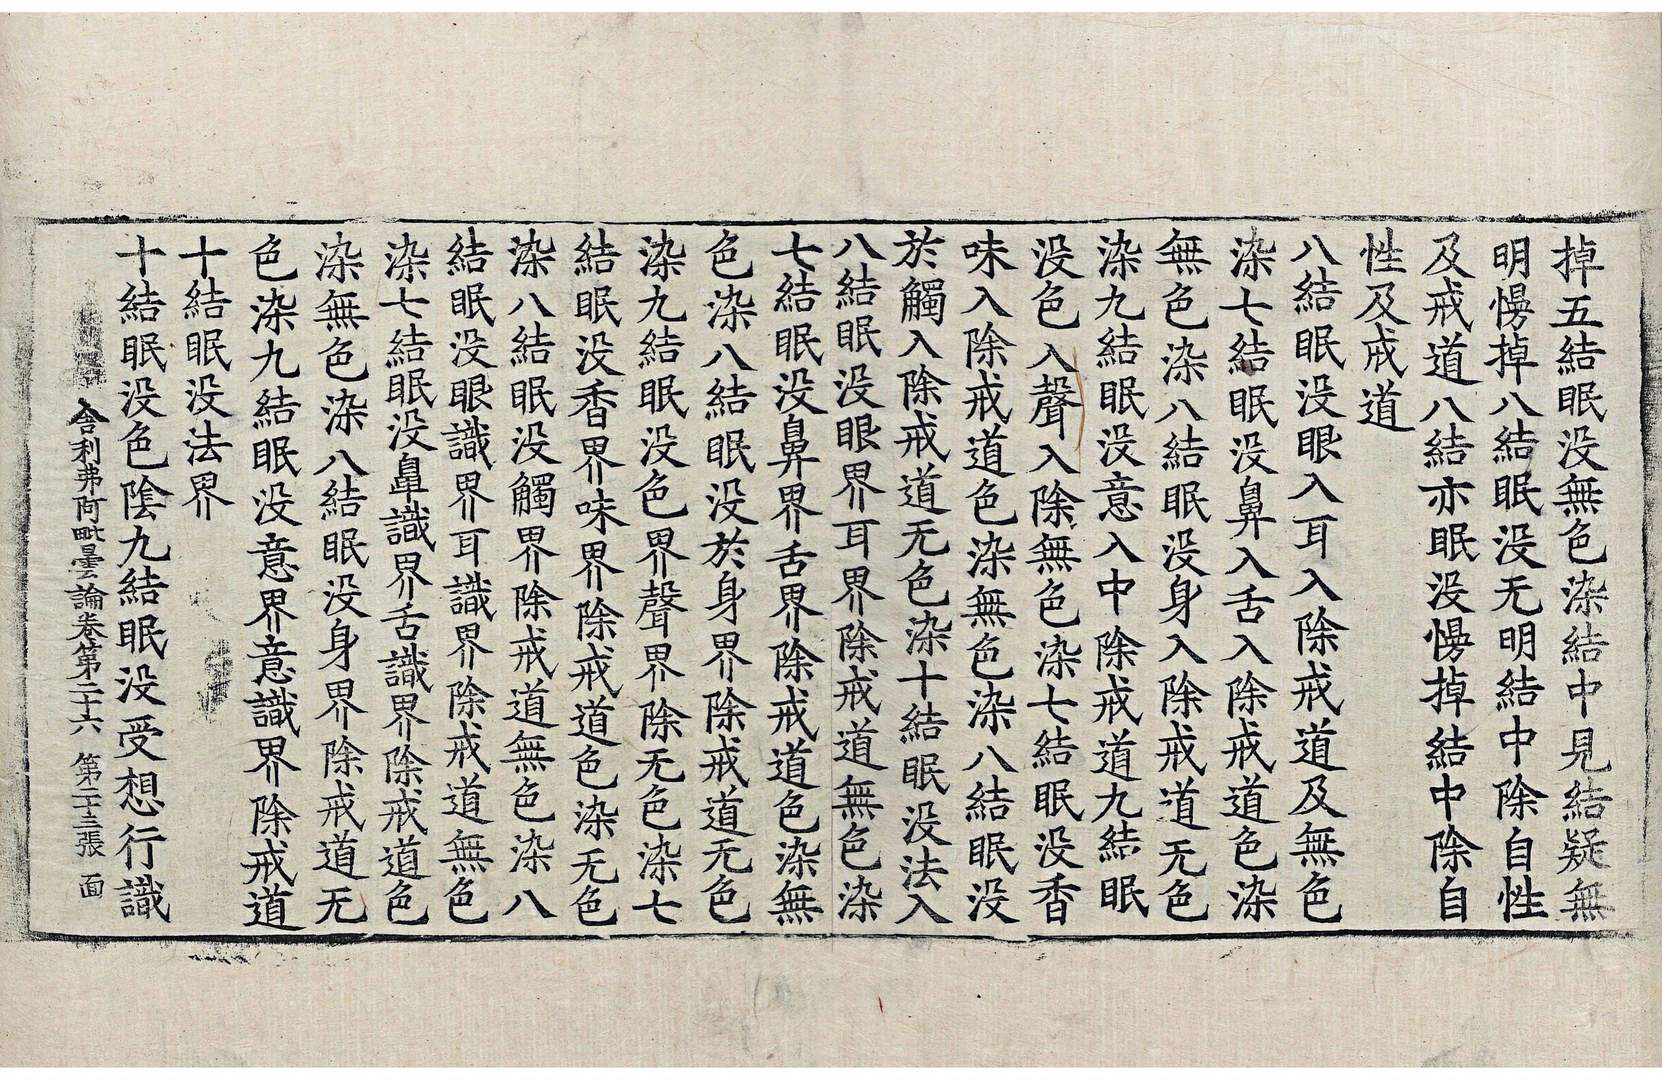 掉五結眠没無色染結中見結疑無
明慢掉八結眠没无明結中除自性
及戒道八結亦眠没慢掉結中除自
性及戒道
八結眠没眼入耳入除戒道及無色
染七結眠没鼻入舌入除戒道色染
無色染八結眠没身入除戒道无色
染九結眠没意入中除戒道九結眠
没色入聲入除無色染七結眠没香
味入除戒道色染無色染八結眠没
於觸入除戒道无色染十結眠没法入
八結眠没眼界耳界除戒道無色染
七結眠没鼻界舌界除戒道色染無
色染八結眠没於身界除戒道无色
染九結眠没色界聲界除无色染七
結眠没香界味界除戒道色染无色
染八結眠没觸界除戒道無色染八
結眠没眼識界耳識界除戒道無色
染七結眠没鼻識界舌識界除戒道色
染無色染八結眠没身界除戒道无
色染九結眠没意界意識界除戒道
十結眠没法界
十結眠没色陰九結眠没受想行識
舍利弗阿毗曇論卷第二十六 第二十三張 面